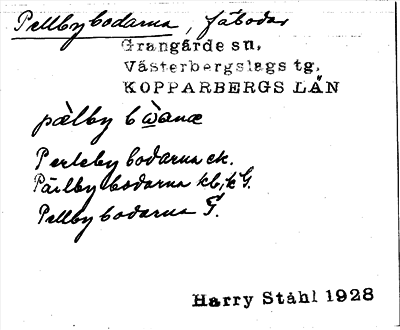 Pellbybodarna, fäbodar
Grangärde sn,
Västerbergslags tg.
KOPPARBERGS LÄN
pæ̀lby bὼanæ
Perlebybodarna ek.
Pärlbybodarna kb, k G.
Pellbybodarna G.
Harry Ståhl 1928